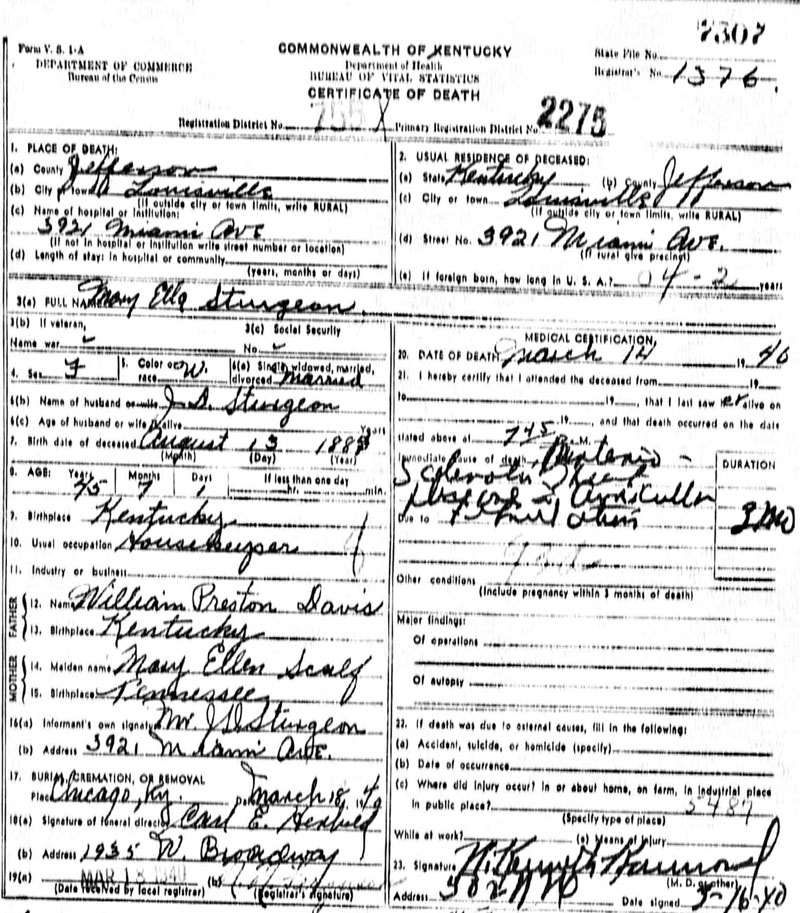 7307
Form V. S. 1-A
DEPARTMENT OF COMMERCE
Bureau of the Census
COMMONWEALTH OF KENTUCKY
Department of Health
BUREAU OF VITAL STATISTICS
CERTIFICATE OF DEATH
State File No.
Registrar's No. 1376.
Registration District No. Primary Registration District No. 2275
1. PLACE OF DEATH:
(a) County Jefferson
(b) City or town Louisville
(If outside city or town limits, write RURAL)
(c) Name of hospital or Institution:
3921 Miami Ave
(If not in hospital or institution write street number or location)
(d) Length of stay: In hospital or community
(years, months or days)
2. USUAL RESIDENCE OF DECEASED:
(a) State Kentucky (b) County Jefferson
(c) City or town Louisville
(If outside city or town limits, write RURAL)
(d) Street No. 3921 Miami Ave.
(If rural give precinct)
(e) If foreign born, how long in U. S. A.? 04-2 years
3(a) FULL NAME Mary Ella Sturgeon
3(b) If veteran, 3(c) Social Security
Name war No.
4. Sex F 5. Color or race W. 6(a) Single, widowed, married, divorced Married
6(b) Name of husband or wife J. D. Sturgeon
6(c) Age of husband or wife if alive Years
7. Birth date of deceased August 13
(Month) (Day) (Year)
8. AGE: Years Months Days If less than one day
75 7 1 hr. min.
9. Birthplace Kentucky
10. Usual occupation Housekeeper
11. Industry or business
FATHER
12. Name William Preston Davis
13. Birthplace Kentucky
MOTHER
14. Maiden name Mary Ellen Scalf
15. Birthplace Tennessee
16(a) Informant's own signature Mr. J D Sturgeon
(b) Address 3921 Miami Ave.
17. BURIAL, CREMATION, OR REMOVAL
Place Chicago, Ky. March 18, 1940
18(a) Signature of funeral director Carl E.
(b) Address 1935 W. Broadway
19(a) MAR 18 1940 (b)
(Date received by local registrar) (Registrar's signature)
MEDICAL CERTIFICATION
20. DATE OF DEATH March 14 1940
21. I hereby certify that I attended the deceased from 19
to 19, that I last saw er alive on
19, and that death occurred on the date
stated above at 745 M.
Immediate cause of death Arterio-
Sclerotic Heart
Disease - Auricular
Due to Fibrillation
DURATION
3 mo
Other conditions
(Include pregnancy within 3 months of death)
Major findings:
Of operations
Of autopsy
22. If death was due to external causes, fill in the following:
(a) Accident, suicide, or homicide (specify)
(b) Date of occurrence
(c) Where did injury occur? In or about home, on farm, in industrial place
in public place? 5487
(Specify type of place)
While at work? (e) Means of injury
23. Signature
(M. D. or other)
Address Date signed 3-16-40